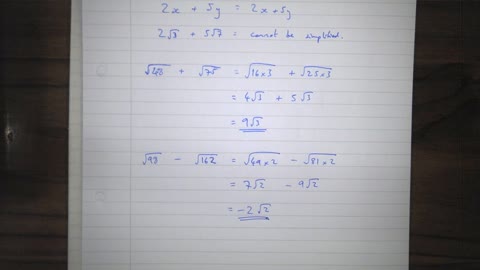 2x + 5y = 2x + 5y
2√3 + 5√7 = cannot be simplified.
√48 + √75 = √16×3 + √25×3
= 4√3 + 5√3
= 9√3
√98 - √162 = √49×2 - √81×2
= 7√2 - 9√2
= -2√2